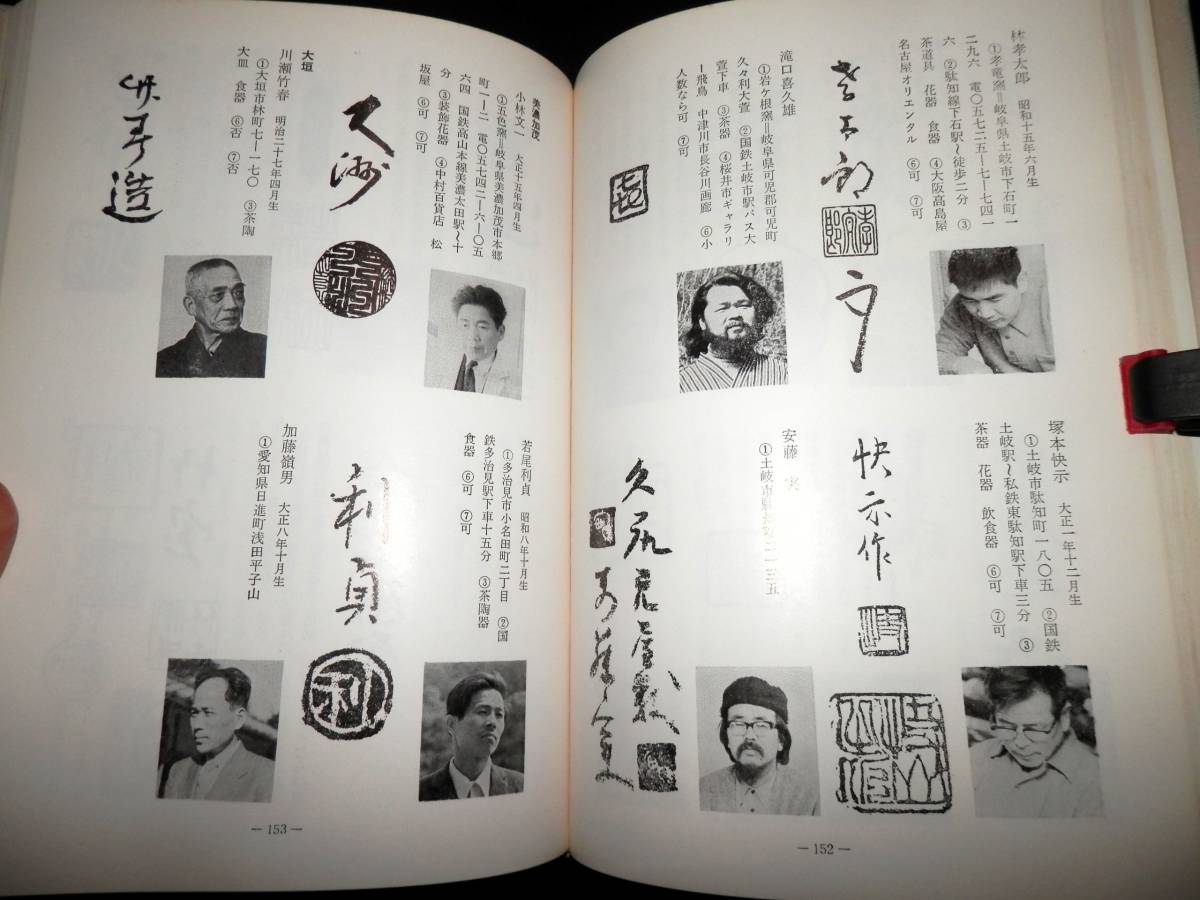 林孝太郎　昭和十五年六月生
①孝竜窯＝岐阜県土岐市下石町一
二九六　電〇五七二五―七―七四一
六　②駄知線下石駅〜徒歩二分　③
茶道具　花器　食器　④大阪高島屋
名古屋オリエンタル　⑥可　⑦可
孝太郎
塚本快示　大正一年十二月生
①土岐市駄知町一八〇五　②国鉄
土岐駅〜私鉄東駄知駅下車三分　③
茶器　花器　飲食器　⑥可　⑦可
快示作
滝口喜久雄
①岩ケ根窯＝岐阜県可児郡可児町
久々利大萱　②国鉄土岐市駅バス大
萱下車　③茶器　④桜井市ギャラリ
ー飛鳥　中津川市長谷川画廊　⑥小
人数なら可　⑦可
安藤　実
①土岐市
久尻
― 152 ―
美濃加茂
小林文一　大正十五年四月生
①五色窯＝岐阜県美濃加茂市本郷
町一―二　電〇五七四二―六―〇五
六四　国鉄高山本線美濃太田駅〜十
分　③装飾花器　④中村百貨店　松
坂屋　⑥可　⑦可
若尾利貞　昭和八年十月生
①多治見市小名田町二丁目　②国
鉄多治見駅下車十五分　③茶陶器
食器　⑥可　⑦可
利貞
利
大垣
川瀬竹春　明治二十七年四月生
①大垣市林町七―一七〇　③茶陶
大皿　食器　⑥否　⑦否
造
加藤嶺男　大正八年十月生
①愛知県日進町浅田平子山
― 153 ―